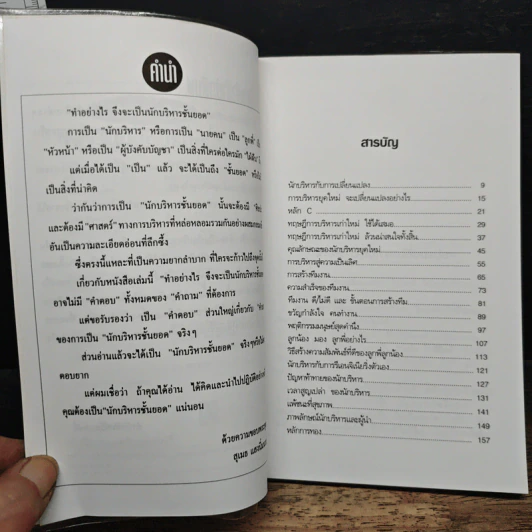 คำนำ
"ทำอย่างไร จึงจะเป็นนักบริหารชั้นยอด"
การเป็น "นักบริหาร" หรือการเป็น "นายคน" เป็น
"หัวหน้า" หรือเป็น "ผู้บังคับบัญชา" เป็นสิ่งที่ใครต่อใครมัก
แต่เมื่อได้เป็น "เป็น" แล้ว จะได้เป็นถึง "ชั้นยอด"
เป็นสิ่งที่น่าคิด
ว่ากันว่าการเป็น "นักบริหารชั้นยอด" นั้นจะต้องมี
และต้องมี "ศาสตร์" ทางการบริหารที่หล่อหลอมรวมกันอย่าง
อันเป็นความละเอียดอ่อนที่ลึกซึ้ง
ซึ่งตรงนี้แหละที่เป็นความยากลำบาก ที่ใครจะก้าวไปถึง
เกี่ยวกับหนังสือเล่มนี้ "ทำอย่างไร จึงจะเป็นนักบริหารชั้น
อาจไม่มี "คำตอบ" ทั้งหมดของ "คำถาม" ที่ต้องการ
แต่ขอรับรองว่า เป็น "คำตอบ" ส่วนใหญ่เกี่ยวกับ
ของการเป็น "นักบริหารชั้นยอด" จริงๆ
ส่วนอ่านแล้วจะได้เป็น "นักบริหารชั้นยอด" จริงๆ
ตอบยาก
แต่ผมเชื่อว่า ถ้าคุณได้อ่าน ได้คิดและนำไปปฏิบัติ
คุณต้องเป็น"นักบริหารชั้นยอด" แน่นอน
ด้วยความขอบ
สุเมธ แสงนิ่ม
สารบัญ
นักบริหารกับการเปลี่ยนแปลง 9
การบริหารยุคใหม่ จะเปลี่ยนแปลงอย่างไร 15
หลัก C 21
ทฤษฎีการบริหารเก่าใหม่ ใช้ได้เสมอ 29
ทฤษฎีการบริหารเก่าใหม่ ล้วนน่าสนใจทั้งสิ้น 37
คุณลักษณะของนักบริหารยุคใหม่ 45
การบริหารสู่ความเป็นเลิศ 55
การสร้างทีมงาน 65
ความสำเร็จของทีมงาน 73
ทีมงาน ดี/ไม่ดี และ ขั้นตอนการสร้างทีม 81
ขวัญกำลังใจ คนทำงาน 89
พฤติกรรมมนุษย์สุดคำนึง 97
ลูกน้อง มอง ลูกพี่อย่างไร 107
วิธีสร้างความสัมพันธ์ที่ดีของลูกพี่ลูกน้อง 113
นักบริหารกับการรีเอนจิเนียริ่งตัวเอง 121
ปัญหาท้าทายของนักบริหาร 127
เวลาสูญเปล่า ของนักบริหาร 131
แพ้ชนะที่สุขภาพ 141
ภาพลักษณ์นักบริหารและผู้นำ 149
หลักการทอง 157